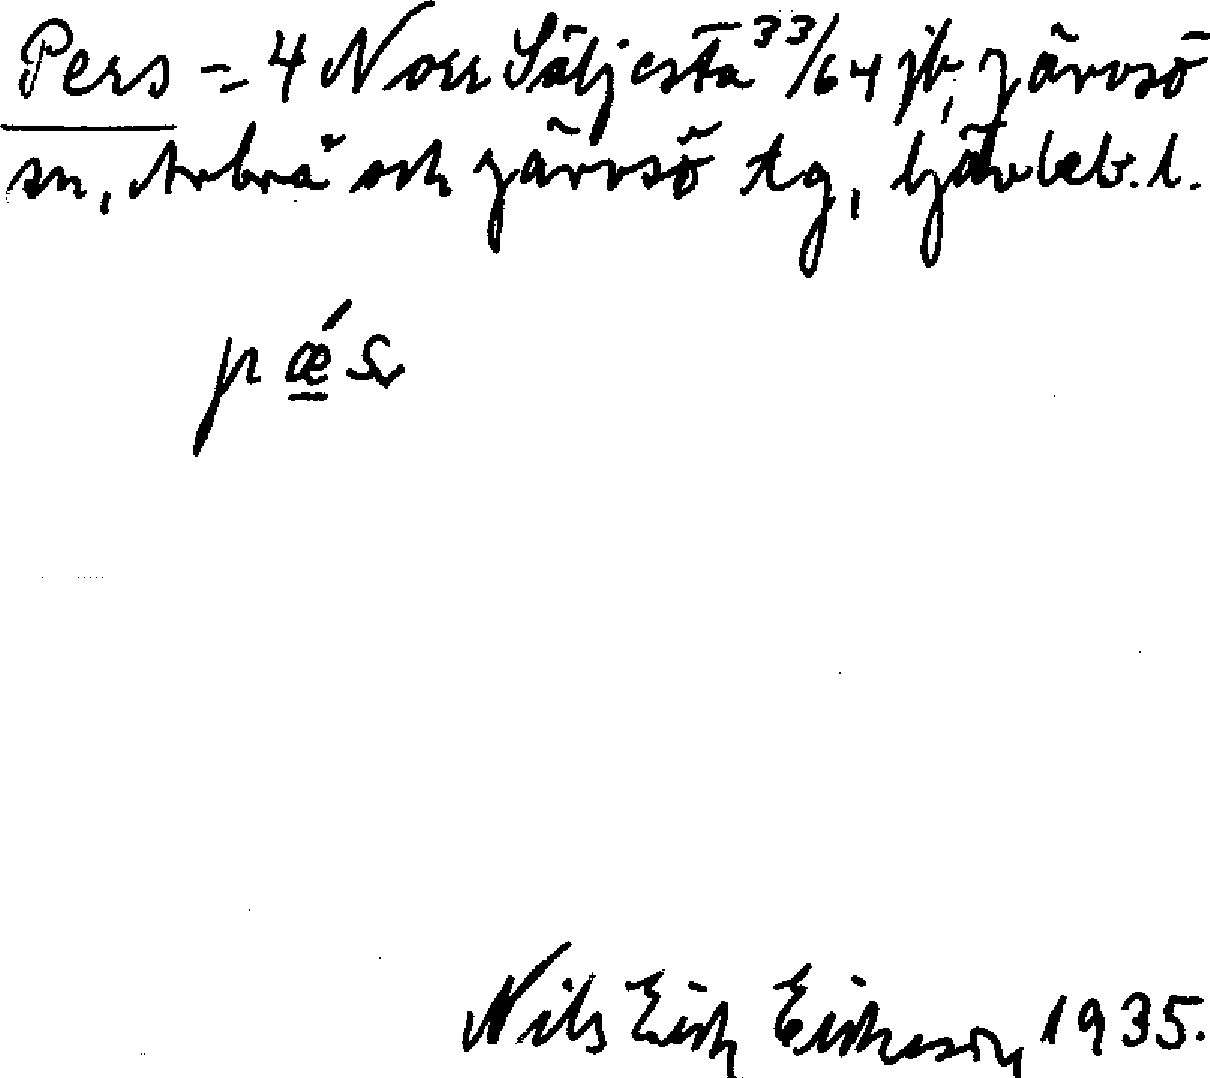 Pers = 4 Norr Säljesta 33/64 jb, Järvsö
sn, Arbrå och Järvsö tg, Gävleb. l.
pǽ̱s
Nils Erik Eriksson 1935.